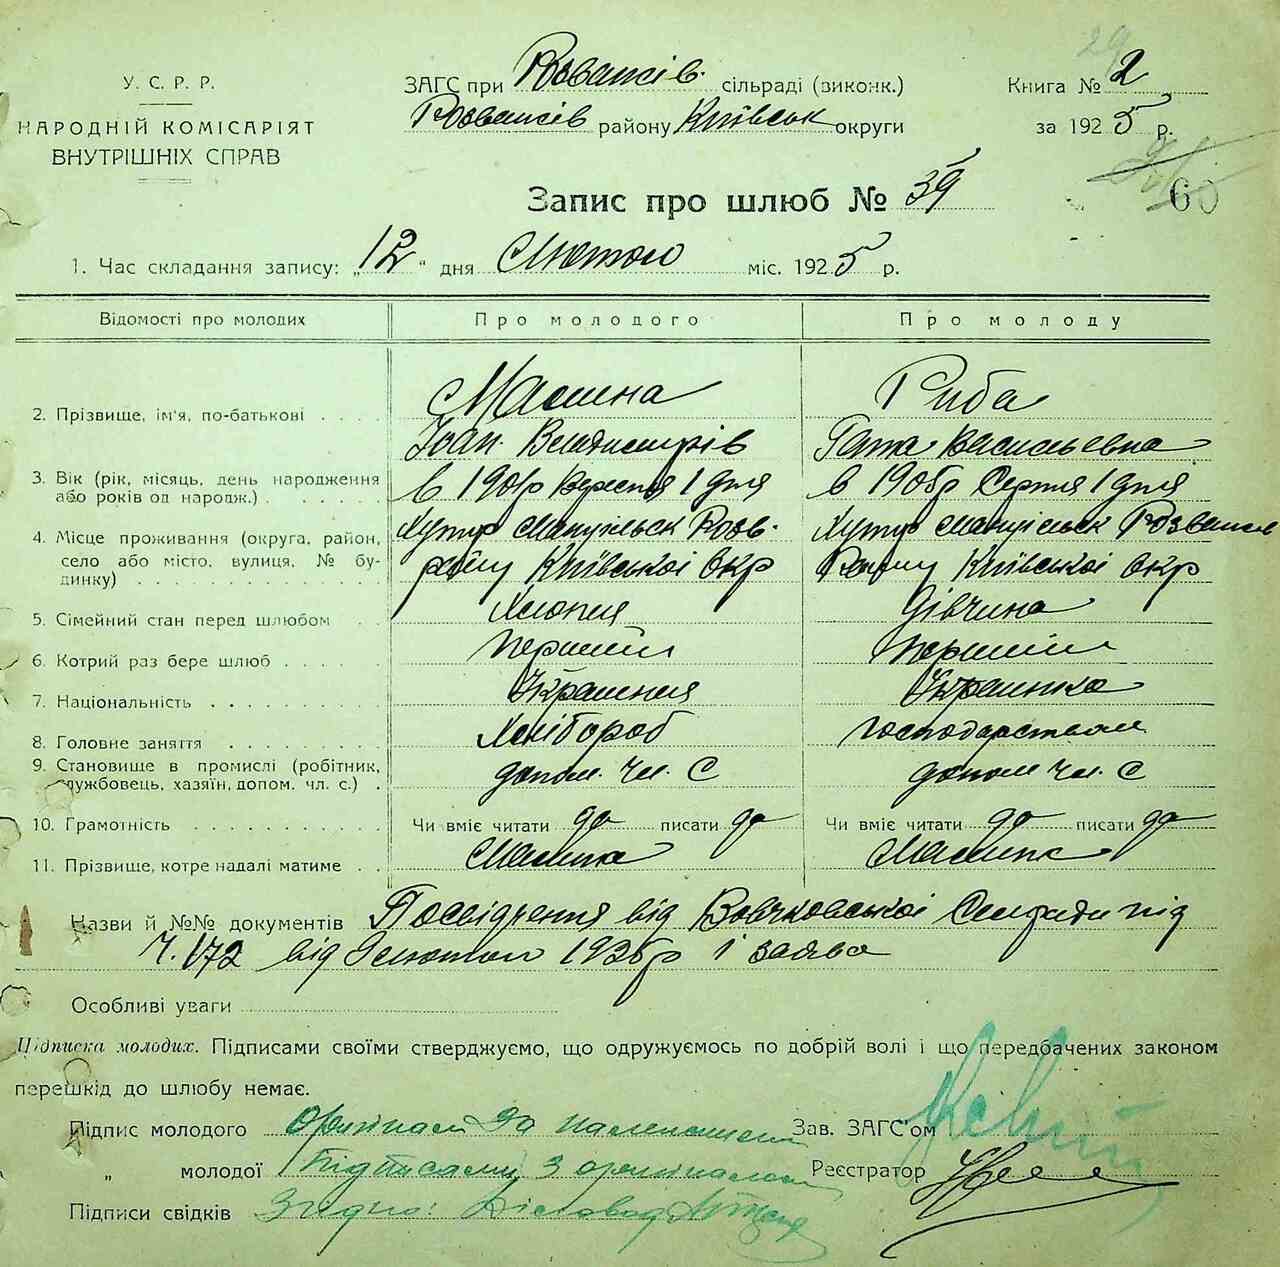 У. С. Р. Р.
НАРОДНІЙ КОМІСАРІЯТ
ВНУТРІШНІХ СПРАВ
ЗАГС при Розважів. сільраді (виконк.)
Розважів району Київськ округи
Книга № 2
за 1925 р.
60
Запис про шлюб № 39
1. Час складання запису: „12“ дня Лютого міс. 1925 р.
Відомості про молодих Про молодого Про молоду
2. Прізвище, ім'я, по-батькові . . . . Малина Риба
Іоан. Володимирів Васильевна
3. Вік (рік, місяць, день народження або років од народж.) . в 1901р Вересня 1 дня в 1905р Серпня 1 дня
4. Місце проживання (округа, район, село або місто, вулиця, № будинку) Хутур Розв. Хутур Розважів
райну Київської Окр Райну Київської Окр
5. Сімейний стан перед шлюбом . . Хлопня Дівчина
6. Котрий раз бере шлюб . . . . . Перший Перший
7. Національність . . . . . . . . Українця Українка
8. Головне заняття . . . . . . . . Хлібороб господарством
9. Становище в промислі (робітник, службовець, хазяїн, допом. чл. с.) . допом. чл. С допом чл. С
10. Грамотність . . . . . . . . . . Чи вміє читати да писати да Чи вміє читати да писати да
11. Прізвище, котре надалі матиме . . Малина Малина
Назви й №№ документів Посвідчення від Вовчковської Сельради під
Ч. 172 від лютого 1925р і заява
Особливі уваги
Підписка молодих. Підписами своїми стверджуємо, що одружуємось по добрій волі і що передбачених законом
перешкід до шлюбу немає.
Підпис молодого Оригінал За належними Зав. ЗАГС'ом
„ молодої підписами, З оригіналом Реєстратор
Підписи свідків Згідно: Діловод